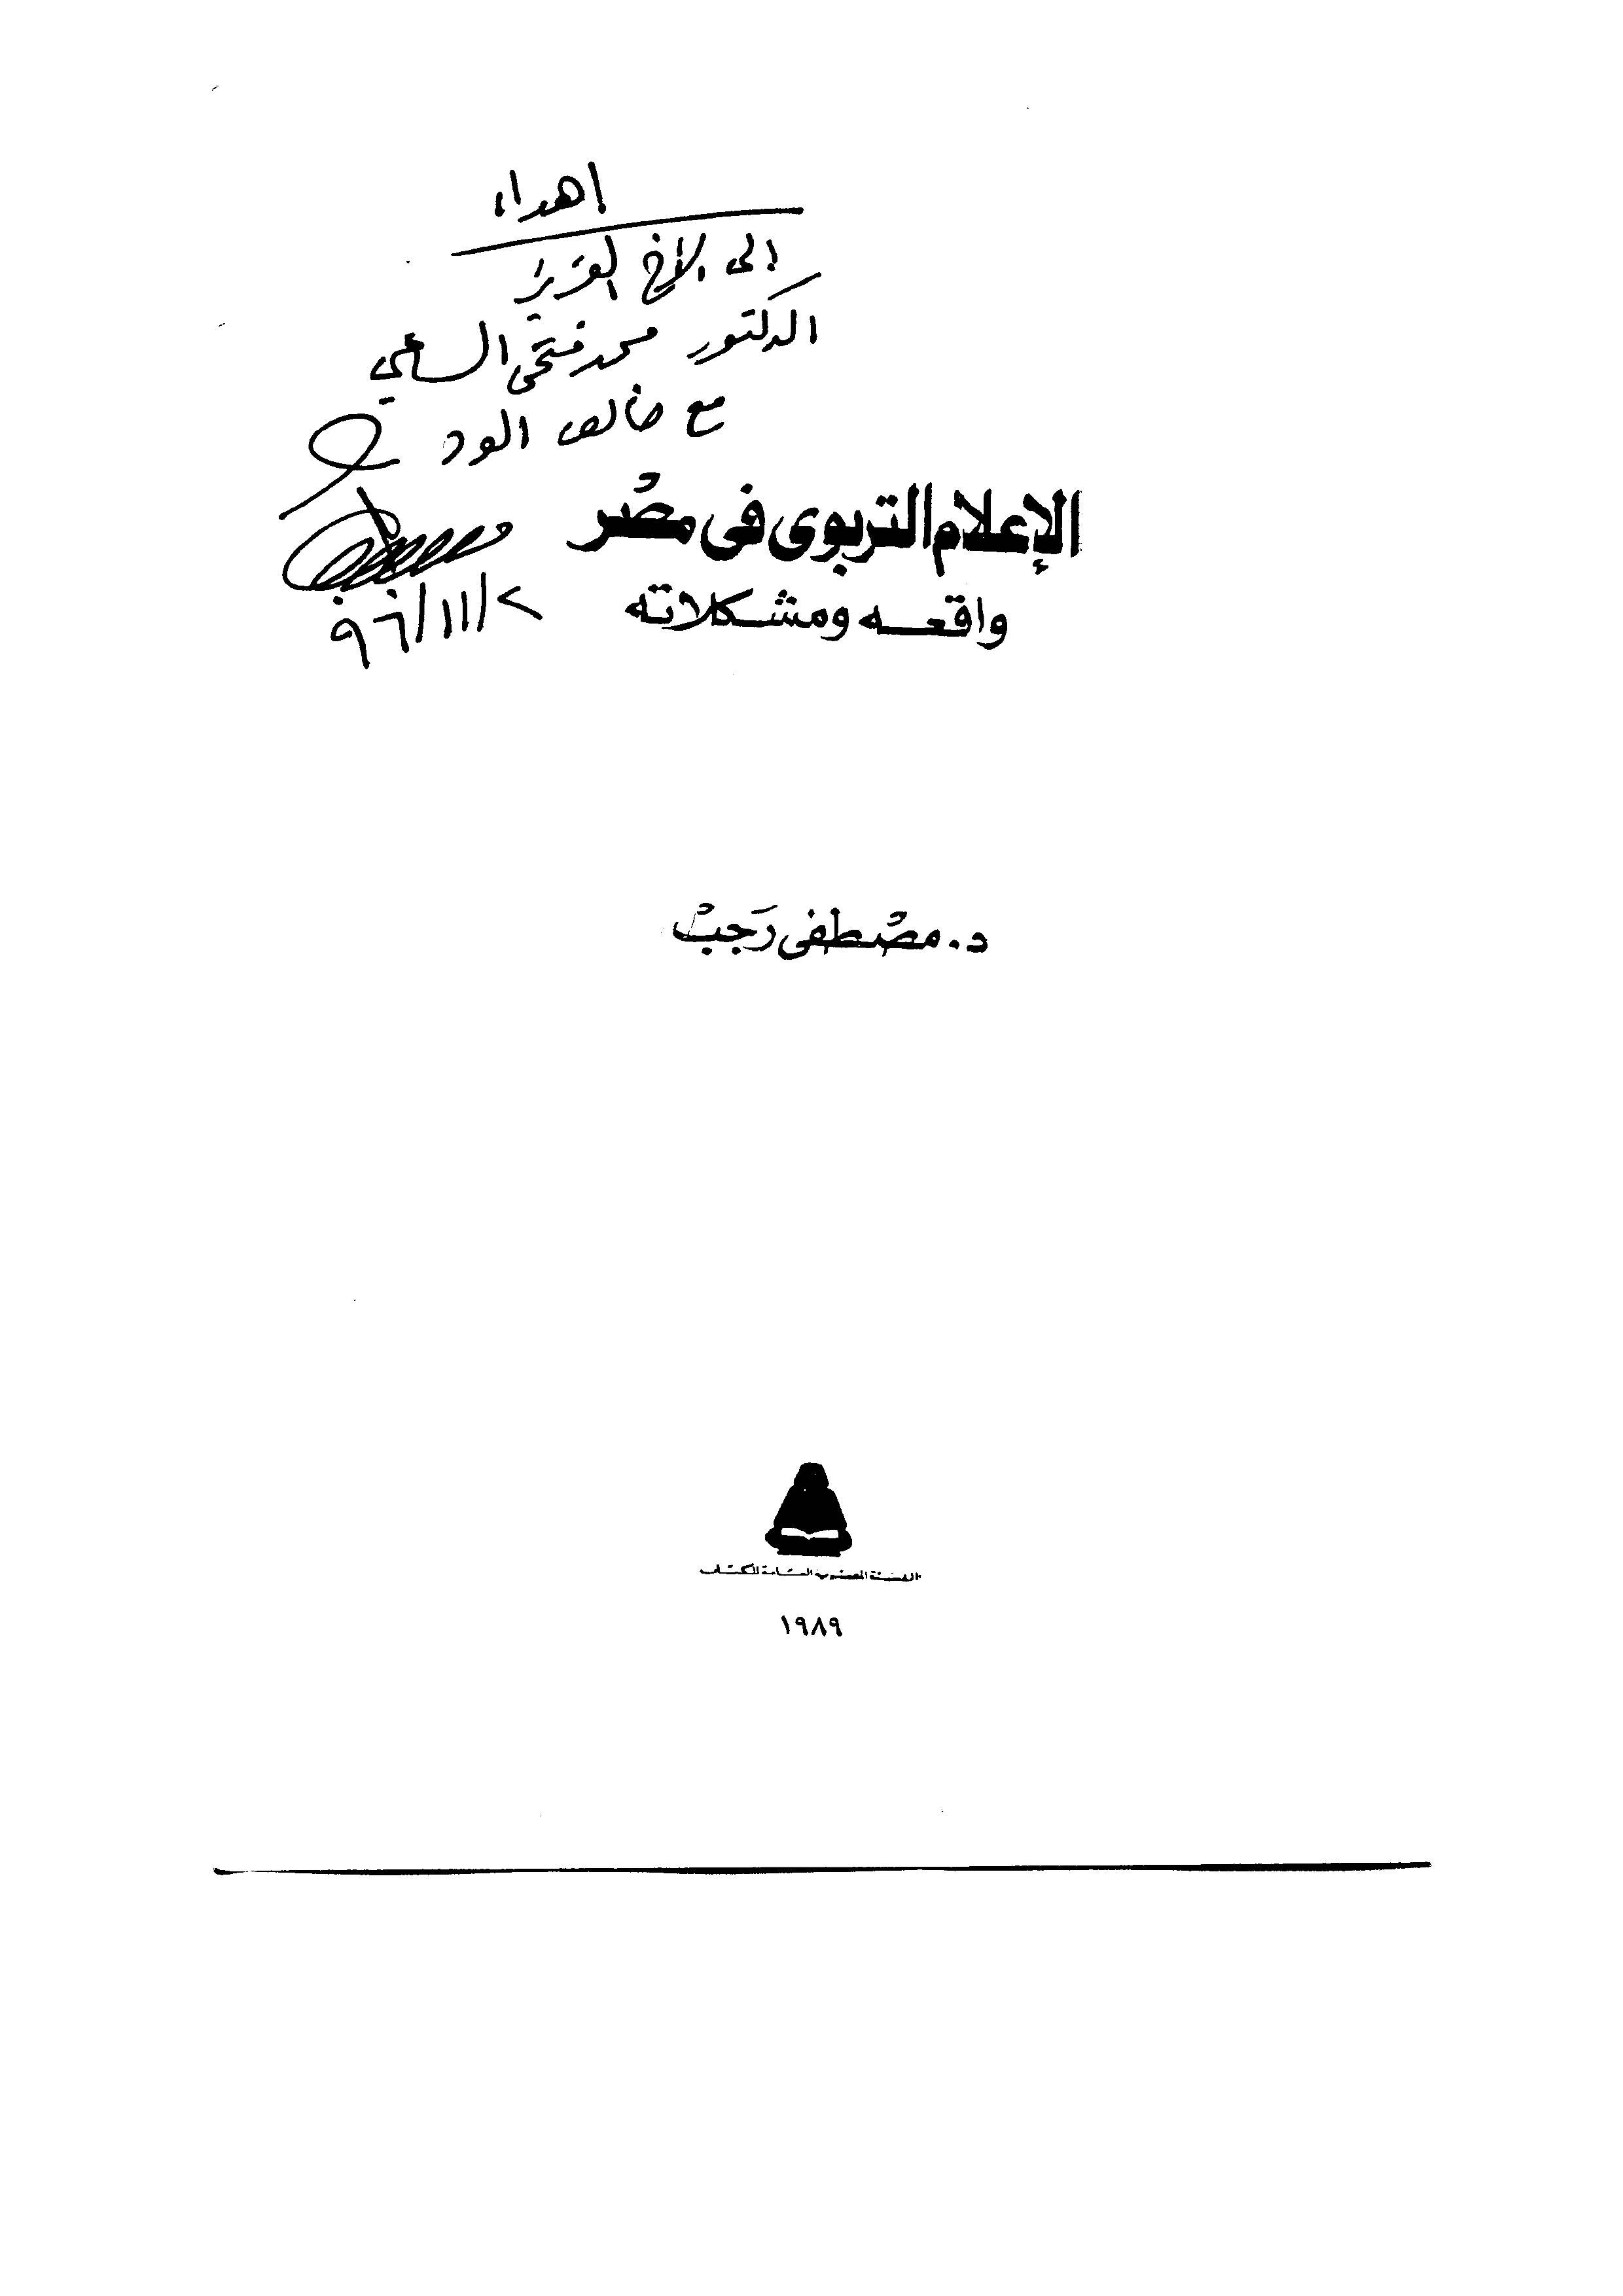 إهداء
إلى الأخ العزيز
الدكتور محمد فتحى
مع خالص الود
الإعلام التربوى فى مصر
واقعه ومشكلاته
٩٦/١١/٢
د. مصطفى رجب
الهيئة المصرية العامة للكتاب
١٩٨٩